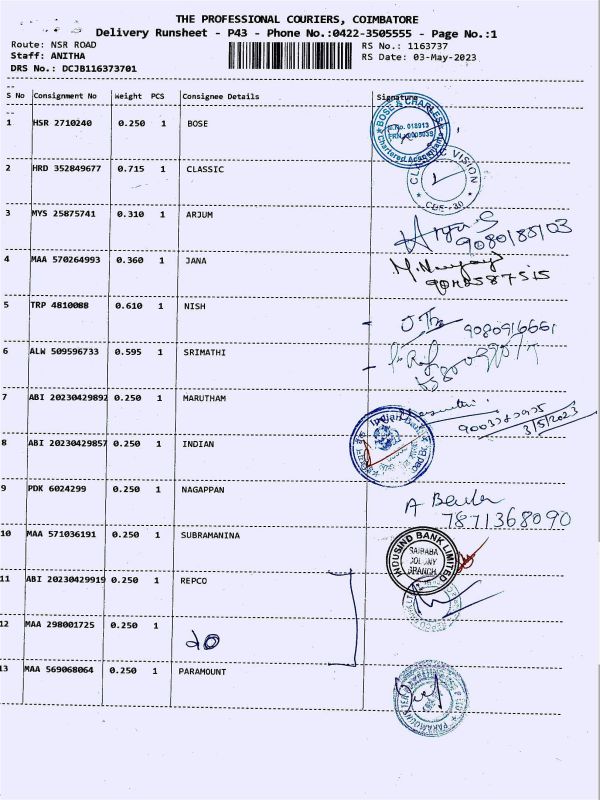 THE PROFESSIONAL COURIERS, COIMBATORE
Delivery Runsheet - P43 - Phone No.:0422-3505555 - Page No.:1
Route: NSR ROAD RS No.: 1163737
Staff: ANITHA RS Date: 03-May-2023
DRS No.: DCJB116373701
S No Consignment No Weight PCS Consignee Details Signature
1 HSR 2710240 0.250 1 BOSE
BOSE & CHARLES
Chartered Accountants
2 HRD 352849677 0.715 1 CLASSIC
VISION
3 MYS 25875741 0.310 1 ARJUM
9080188103
4 MAA 570264993 0.360 1 JANA
5 TRP 4810088 0.610 1 NISH
9080916661
6 ALW 509596733 0.595 1 SRIMATHI
7 ABI 20230429892 0.250 1 MARUTHAM
3/5/2023
8 ABI 20230429857 0.250 1 INDIAN
Indian Bank
9 PDK 6024299 0.250 1 NAGAPPAN
7871368090
10 MAA 571036191 0.250 1 SUBRAMANINA
INDUSIND BANK LIMITED
SAIBABA
COLONY
BRANCH
11 ABI 20230429919 0.250 1 REPCO
12 MAA 298001725 0.250 1
do
13 MAA 569068064 0.250 1 PARAMOUNT